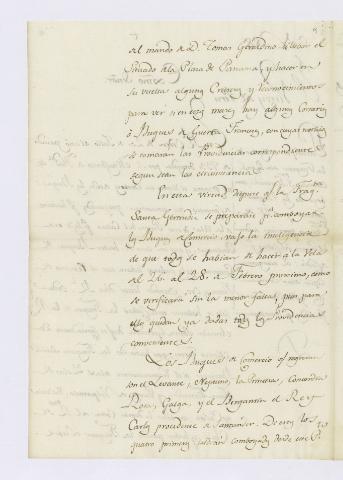 al mando de D. Tomas Geraldino llevar el
Situado a la Plaza de Panama, y hacer en
su vuelta algun Crucero, y reconocimiento
para ver si en esos mares hay algun Corsario
ó Buques de Guerra Franceses, con cuyas noticias
se tomaran las Providencias correspondientes
segun sean las circunstancias.
En esta virtud dispuse q.e la Frag.ta
Santa Gertrudis se preparase p.a comboyar
los Buques de Comercio, vajo la inteligencia
de que todos se habian de hacer á la Vela
del 26. al 28. de Febrero proximo, como
se verificará sin la menor falta, pues para
ello quedan ya dadas todas las Providencias
convenientes.
Los Buques de Comercio q.e
son el Levante, Neptuno, la Primera, Concordia
Rosa, Galga, y el Bergantin el Rey
Carlos procedente de Santander. De estos los
quatro primeros saldrán comboyados desde este P.to